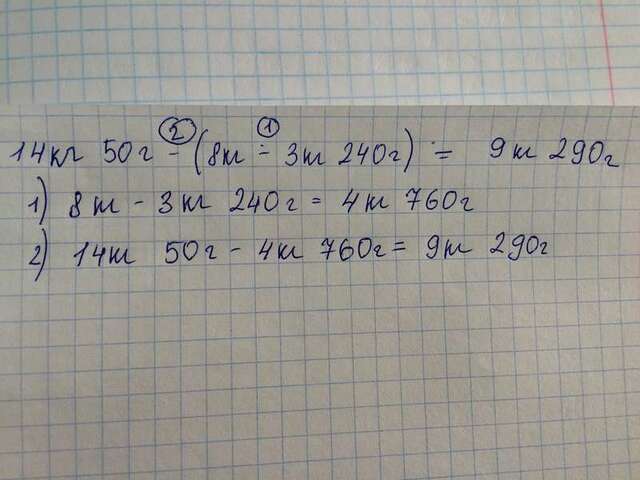 ② ①
14кг 50г - (8кг - 3кг 240г) = 9кг 290г
1) 8кг - 3кг 240г = 4кг 760г
2) 14кг 50г - 4кг 760г = 9кг 290г